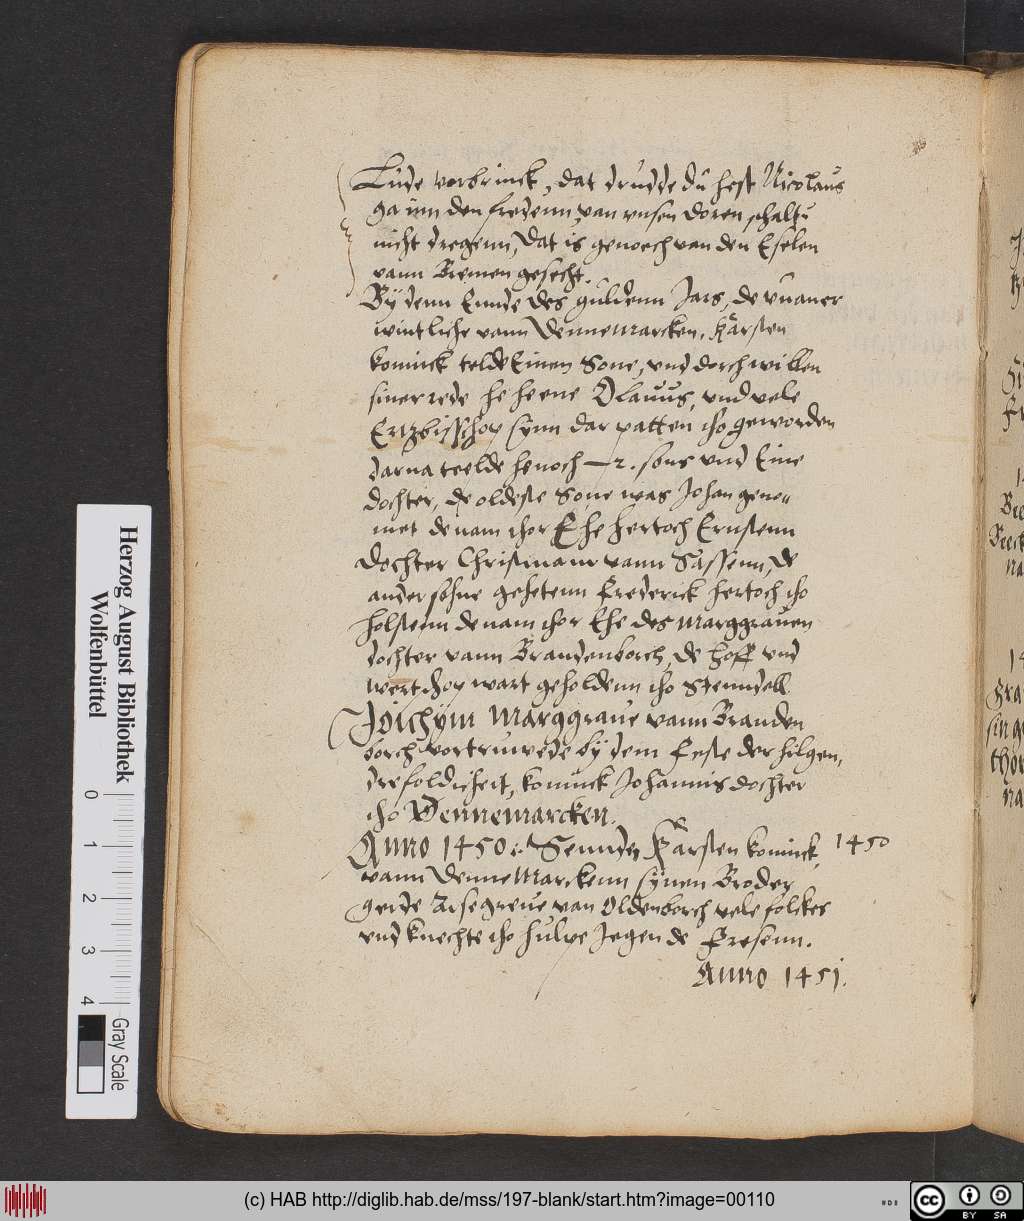 Lude vorbrinck, dat drudde du hest Nicolaus
ga inn den fredenn, van unsen doren schaltu
nicht dregenn, Dat is genoech van den Eselen
vann Bremen gesecht.
By denn Ennde des guldenn Jars, de
vann Dennemarcken, Karsten
konninck telde Einen Sone, und dorch willen
siner rede he heene Olauus, und vele
Ertzbisschop synn dar patten tho geworden
darna teelde he noch 2. sons und Eine
dochter, de oldeste Sone was Johan geno-
met de nam thor Ehe Hertoch Ernstenn
dochter Christinam vann Sassenn, de
ander sohne gehetenn Frederick Hertoch tho
Holstenn de nam thor Ehe des Marggrauen
dochter vann Brandenborch, de Hoff und
wertschop wart geholdenn tho Stenndell.
Joichym Marggraue vann Branden
borch vortruwede by dem Feste der hilgen,
drefoldicheit, konninck Johannis dochter
tho Dennemarcken.
Anno 1450. Sennde Karsten konninck 1450
vann Dennemarckenn synen Broder
gerde greue van Oldenborch vele folckes
und knechte tho hulpe Jegen de Fresenn.
Anno 1451.
Herzog August Bibliothek
Wolfenbüttel
0 1 2 3 4
Gray Scale
(c) HAB http://diglib.hab.de/mss/197-blank/start.htm?image=00110
cc BY SA